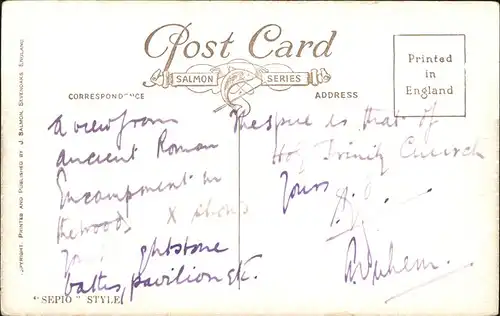 Post Card
SALMON SERIES
CORRESPONDENCE
ADDRESS
Printed
in
England
COPYRIGHT. PRINTED AND PUBLISHED BY J. SALMON, SEVENOAKS, ENGLAND
A view from
ancient Roman
Encampment in
the wood, X shows
baths, pavilion etc.
The spire is that of
Holy Trinity Church
Yours
"SEPIO" STYLE